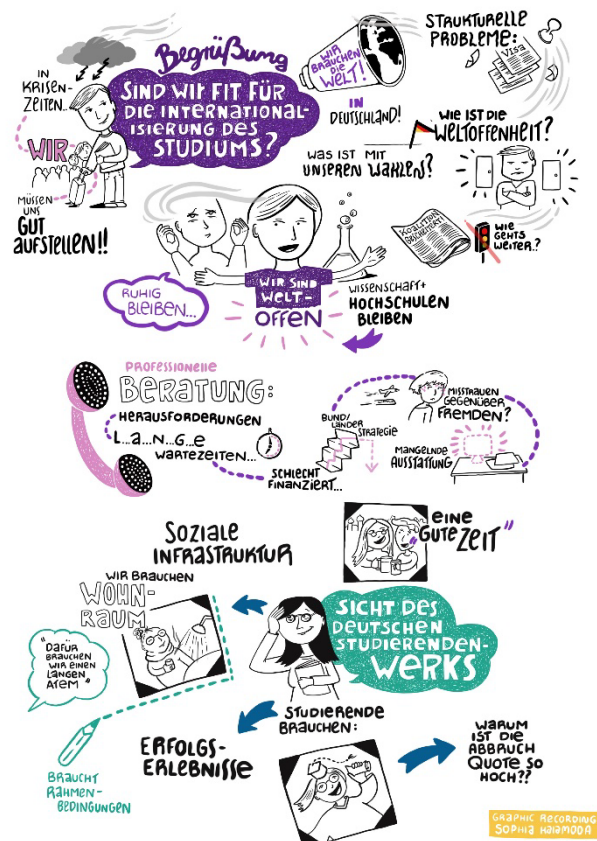 Begrüßung
SIND WIR FIT FÜR
DIE INTERNATIONAL-
ISIERUNG DES
STUDIUMS?
IN
KRISEN-
ZEITEN..
WIR
MÜSSEN
UNS
GUT
AUFSTELLEN!!
WIR
BRAUCHEN
DIE
WELT!
IN
DEUTSCHLAND!
STRUKTURELLE
PROBLEME:
VISA
WIE IST DIE
WELTOFFENHEIT?
WAS IST MIT
UNSEREN WAHLEN?
KOALITION
GESCHEITERT!
WIE
GEHTS
WEITER..?
RUHIG
BLEIBEN...
WIR SIND
WELT-
OFFEN
WISSENSCHAFT+
HOCHSCHULEN
BLEIBEN
PROFESSIONELLE
BERATUNG:
HERAUSFORDERUNGEN
L...a...N...G...e
WARTEZEITEN...
SCHLECHT
FINANZIERT...
BUND/
LÄNDER
STRATEGIE
MISSTRAUEN
GEGENÜBER
FREMDEN?
MANGELNDE
AUSSTATTUNG
SOZIALE
INFRASTRUKTUR
EINE
"GUTE ZEIT"
WIR BRAUCHEN
WOHN-
RAUM
"DAFÜR
BRAUCHEN
WIR EINEN
LANGEN
ATEM"
BRAUCHT
RAHMEN-
BEDINGUNGEN
SICHT DES
DEUTSCHEN
STUDIERENDEN-
WERKS
STUDIERENDE
BRAUCHEN:
ERFOLGS-
ERLEBNISSE
WARUM
IST DIE
ABBRUCH
QUOTE SO
HOCH??
GRAPHIC RECORDING
SOPHIA HALAMODA